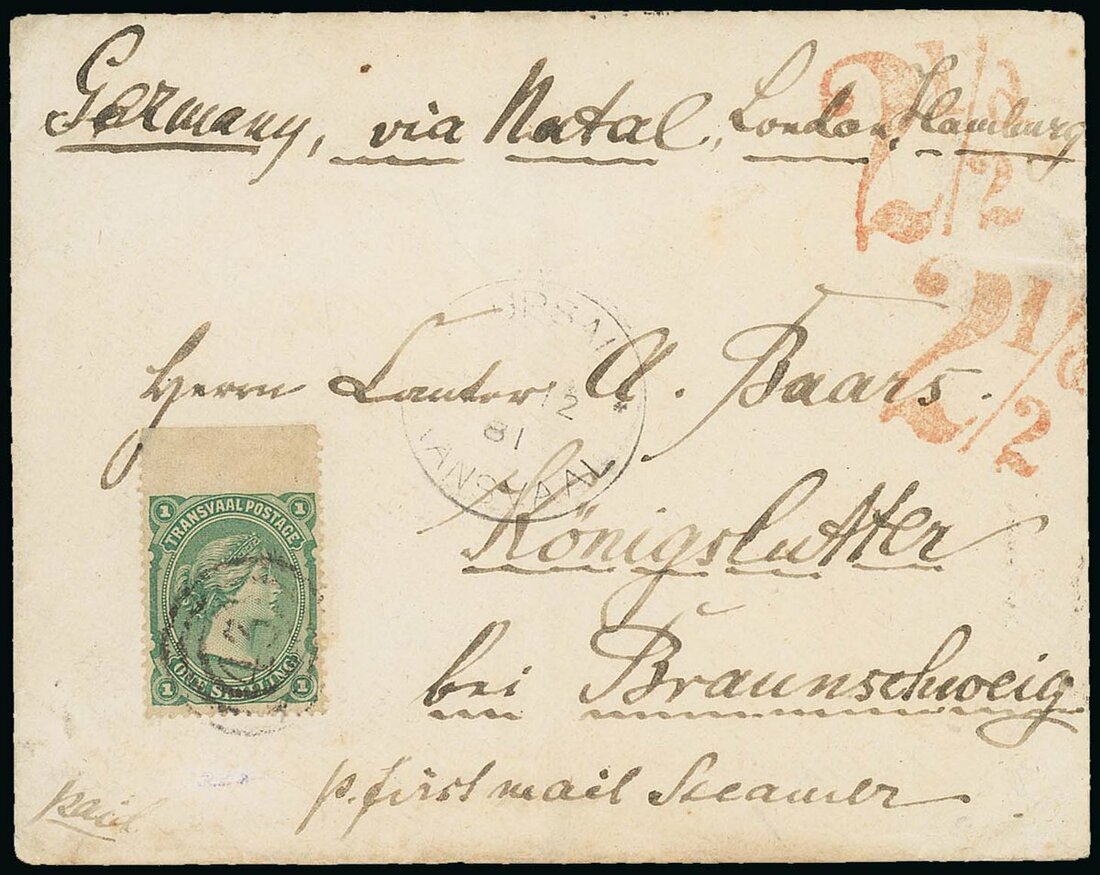 Germany, via Natal, London, Hamburg
2 1/2
2 1/2
Herrn Cantor A. Baars.
12
81
Königslutter
TRANSVAAL POSTAGE
1 1
ONE SHILLING
1 1
bei Braunschweig
p. first mail Steamer
paid